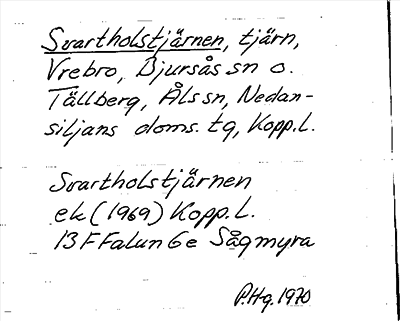 Svartholstjärnen, tjärn,
Vrebro, Bjursås sn o.
Tällberg, Åls sn, Nedan-
siljans doms. tg, Kopp. L.
Svartholstjärnen
ek (1969) Kopp. L.
13 F Falun 6e Sågmyra
P.Hg. 1970